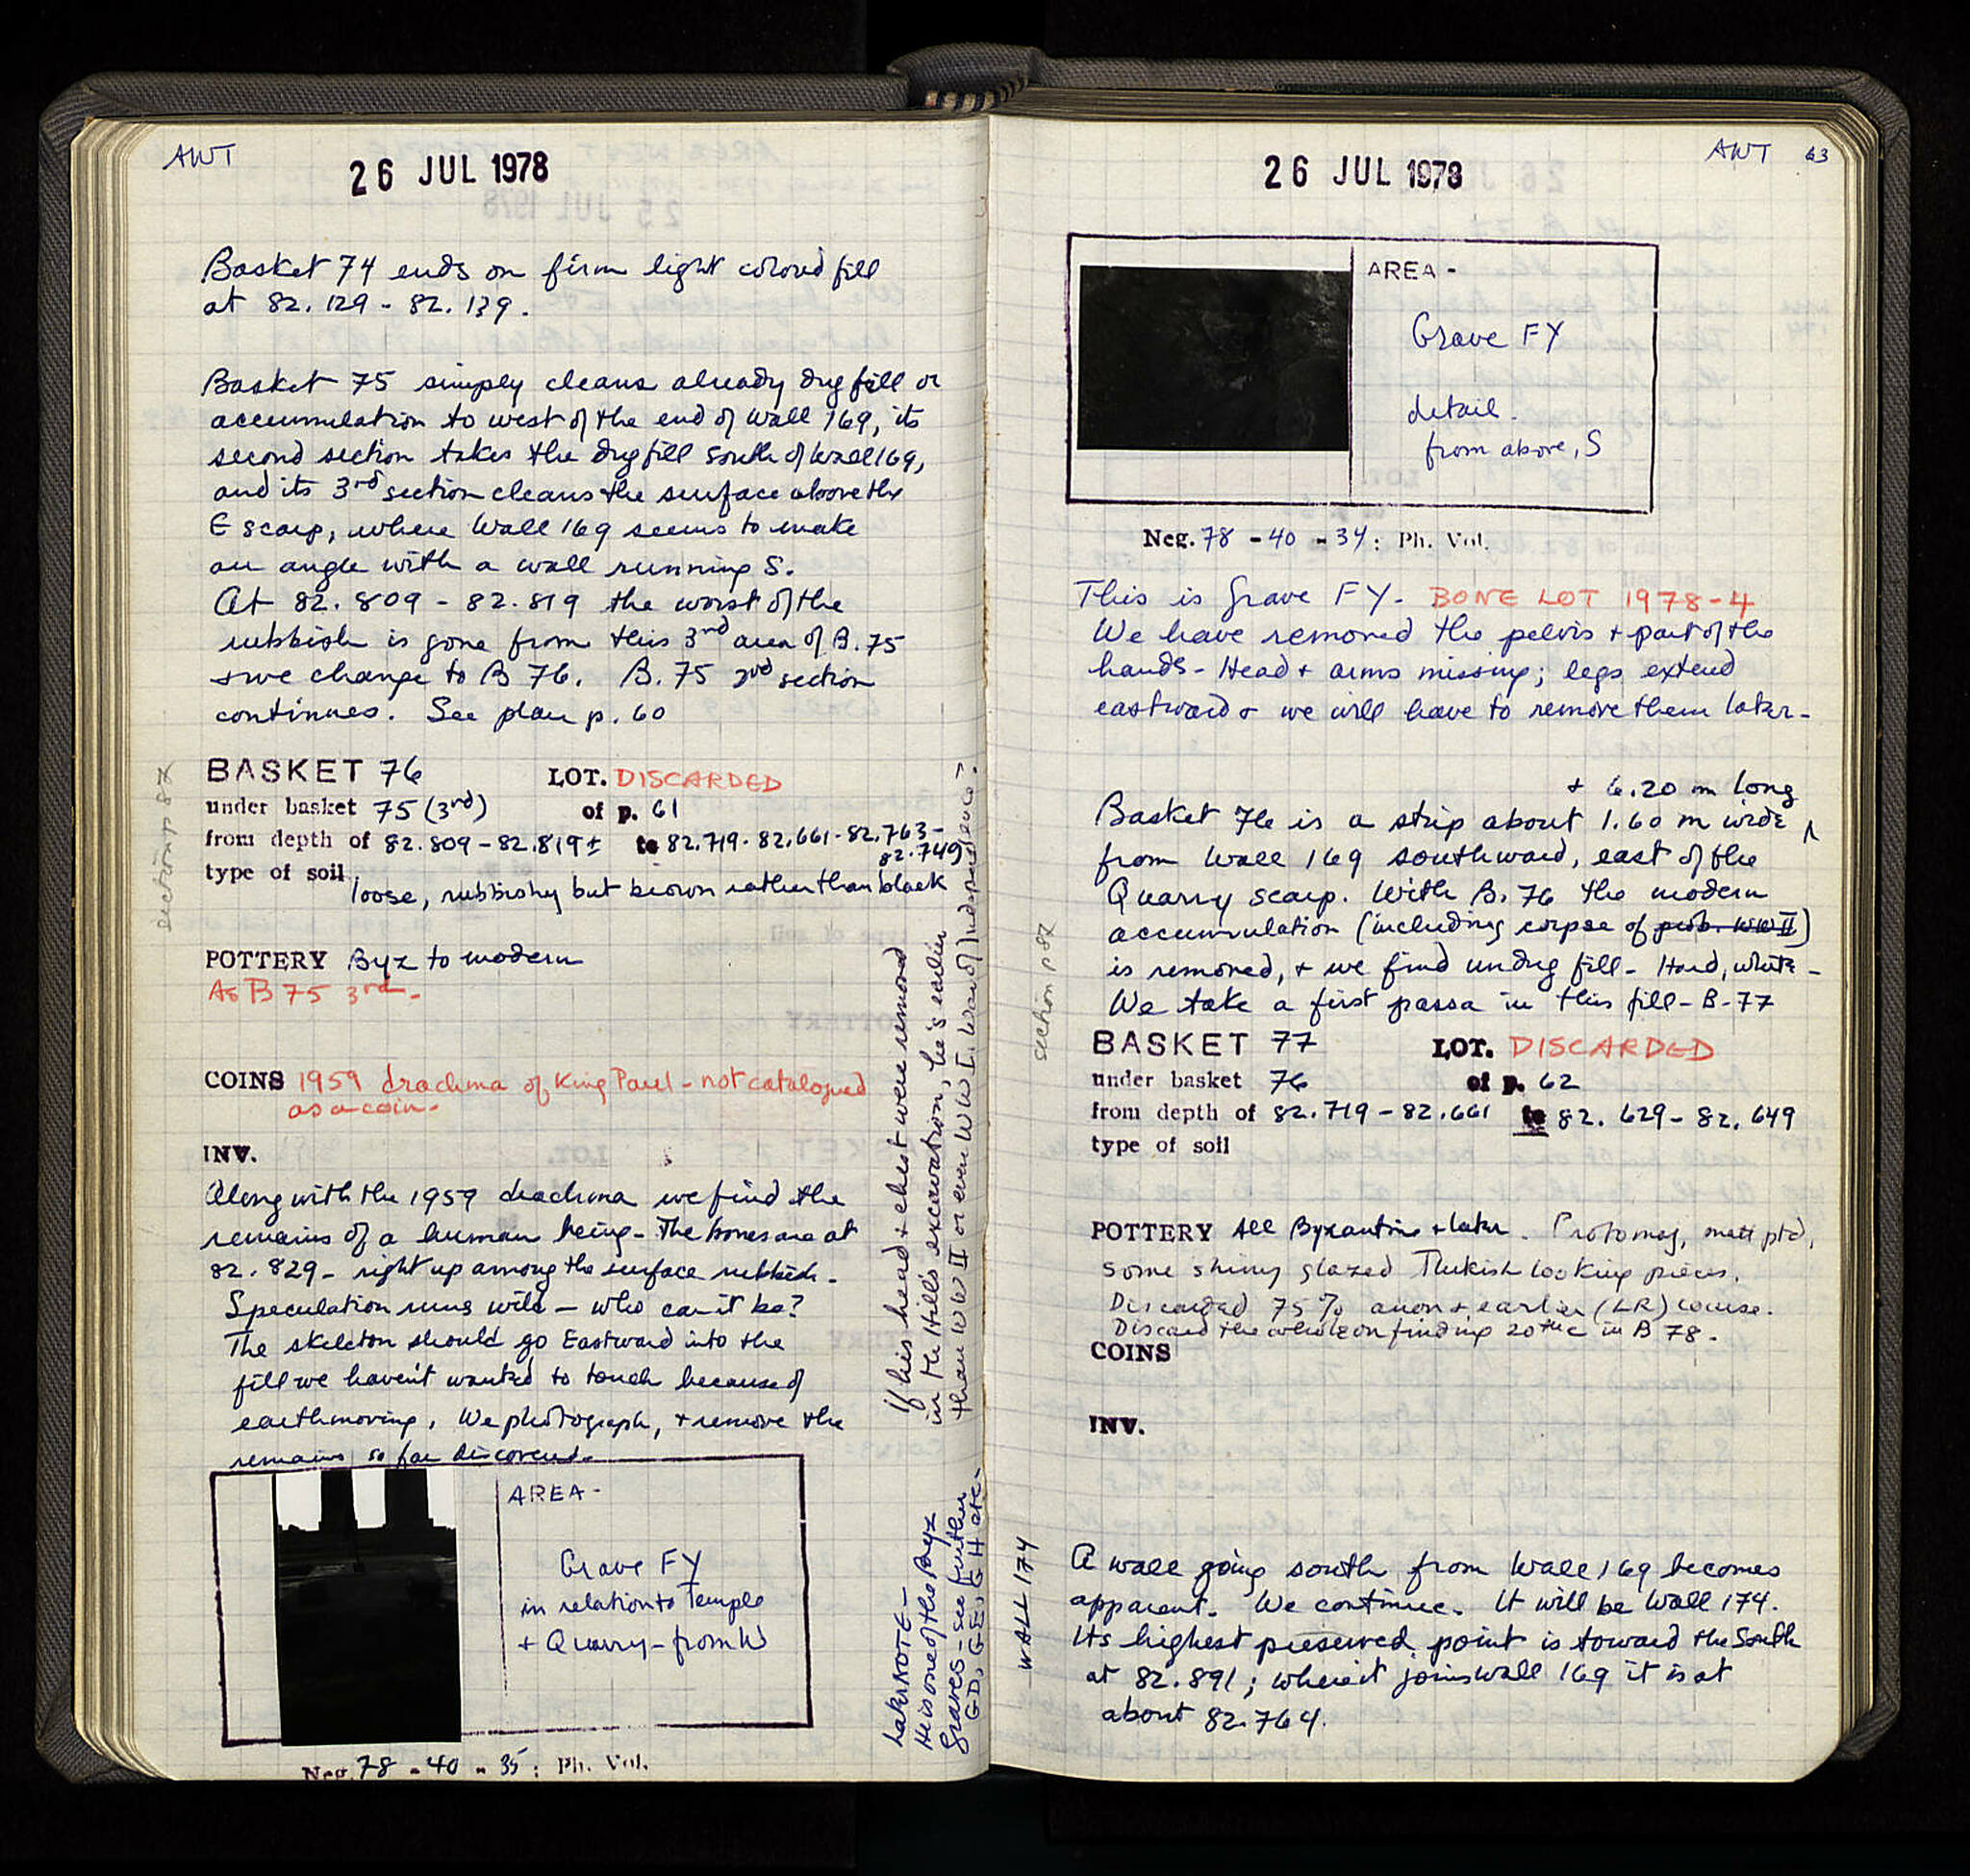 AWT
26 JUL 1978
Basket 74 ends on firm light colored fill
at 82.129 - 82.139.
Basket 75 simply cleans already dug fill or
accumulation to west of the end of Wall 169, its
second section takes the dug fill south of Wall 169,
and its 3rd section cleans the surface above the
E scarp, where Wall 169 seems to make
an angle with a wall running S.
At 82.809 - 82.819 the worst of the
rubbish is gone from this 3rd area of B.75
+ we change to B 76. B.75 2nd section
continues. See plan p. 60
section p 87
BASKET 76 LOT. DISCARDED
under basket 75 (3rd) of p. 61
from depth of 82.809 - 82.819 ± to 82.719 - 82.661 - 82.763 -
82.749
type of soil loose, rubbishy but brown rather than black
POTTERY Byz to modern
As B 75 3rd -
COINS 1959 drachma of King Paul - not catalogued
as a coin -
INV.
Along with the 1959 drachma we find the
remains of a human being - The bones are at
82.829 - right up among the surface rubbish -
Speculation runs wild - who can it be?
The skeleton should go Eastward into the
fill we haven't wanted to touch because of
earthmoving. We photograph, + remove the
remains so far discovered.
AREA -
Grave FY
in relation to Temple
+ Quarry - from W
Neg. 78 - 40 - 35 : Ph. Vol.
If his head + chest were removed
in the Hill's excavation, he's earlier
than WW II or even WW I. War of Independence?
Later NOTE -
He is one of the Byz
graves - see further
GD, GE, GH etc -
AWT 63
26 JUL 1978
AREA -
Grave FY
detail.
from above, S
Neg. 78 - 40 - 34 : Ph. Vol.
This is Grave FY - BONE LOT 1978-4
We have removed the pelvis + part of the
hands - Head + arms missing; legs extend
eastward + we will have to remove them later -
+ 6.20 m long
Basket 76 is a strip about 1.60 m wide
from Wall 169 southward, east of the
Quarry scarp. With B. 76 the modern
accumulation (including corpse of prob. WW II)
is removed, + we find undug fill - Hard, white -
We take a first passa in this fill - B-77
section p 87
BASKET 77 LOT. DISCARDED
under basket 76 of p. 62
from depth of 82.719 - 82.661 to 82.629 - 82.649
type of soil
POTTERY All Byzantine + later. Protomaj, matt ptd,
some shiny glazed Turkish looking pieces.
Discarded 75% anon + earlier (LR) coarse.
Discard the whole on finding 20th c in B 78.
COINS
INV.
WALL 174
A wall going south from Wall 169 becomes
apparent. We continue. It will be Wall 174.
Its highest preserved point is toward the South
at 82.891; where it joins wall 169 it is at
about 82.764.